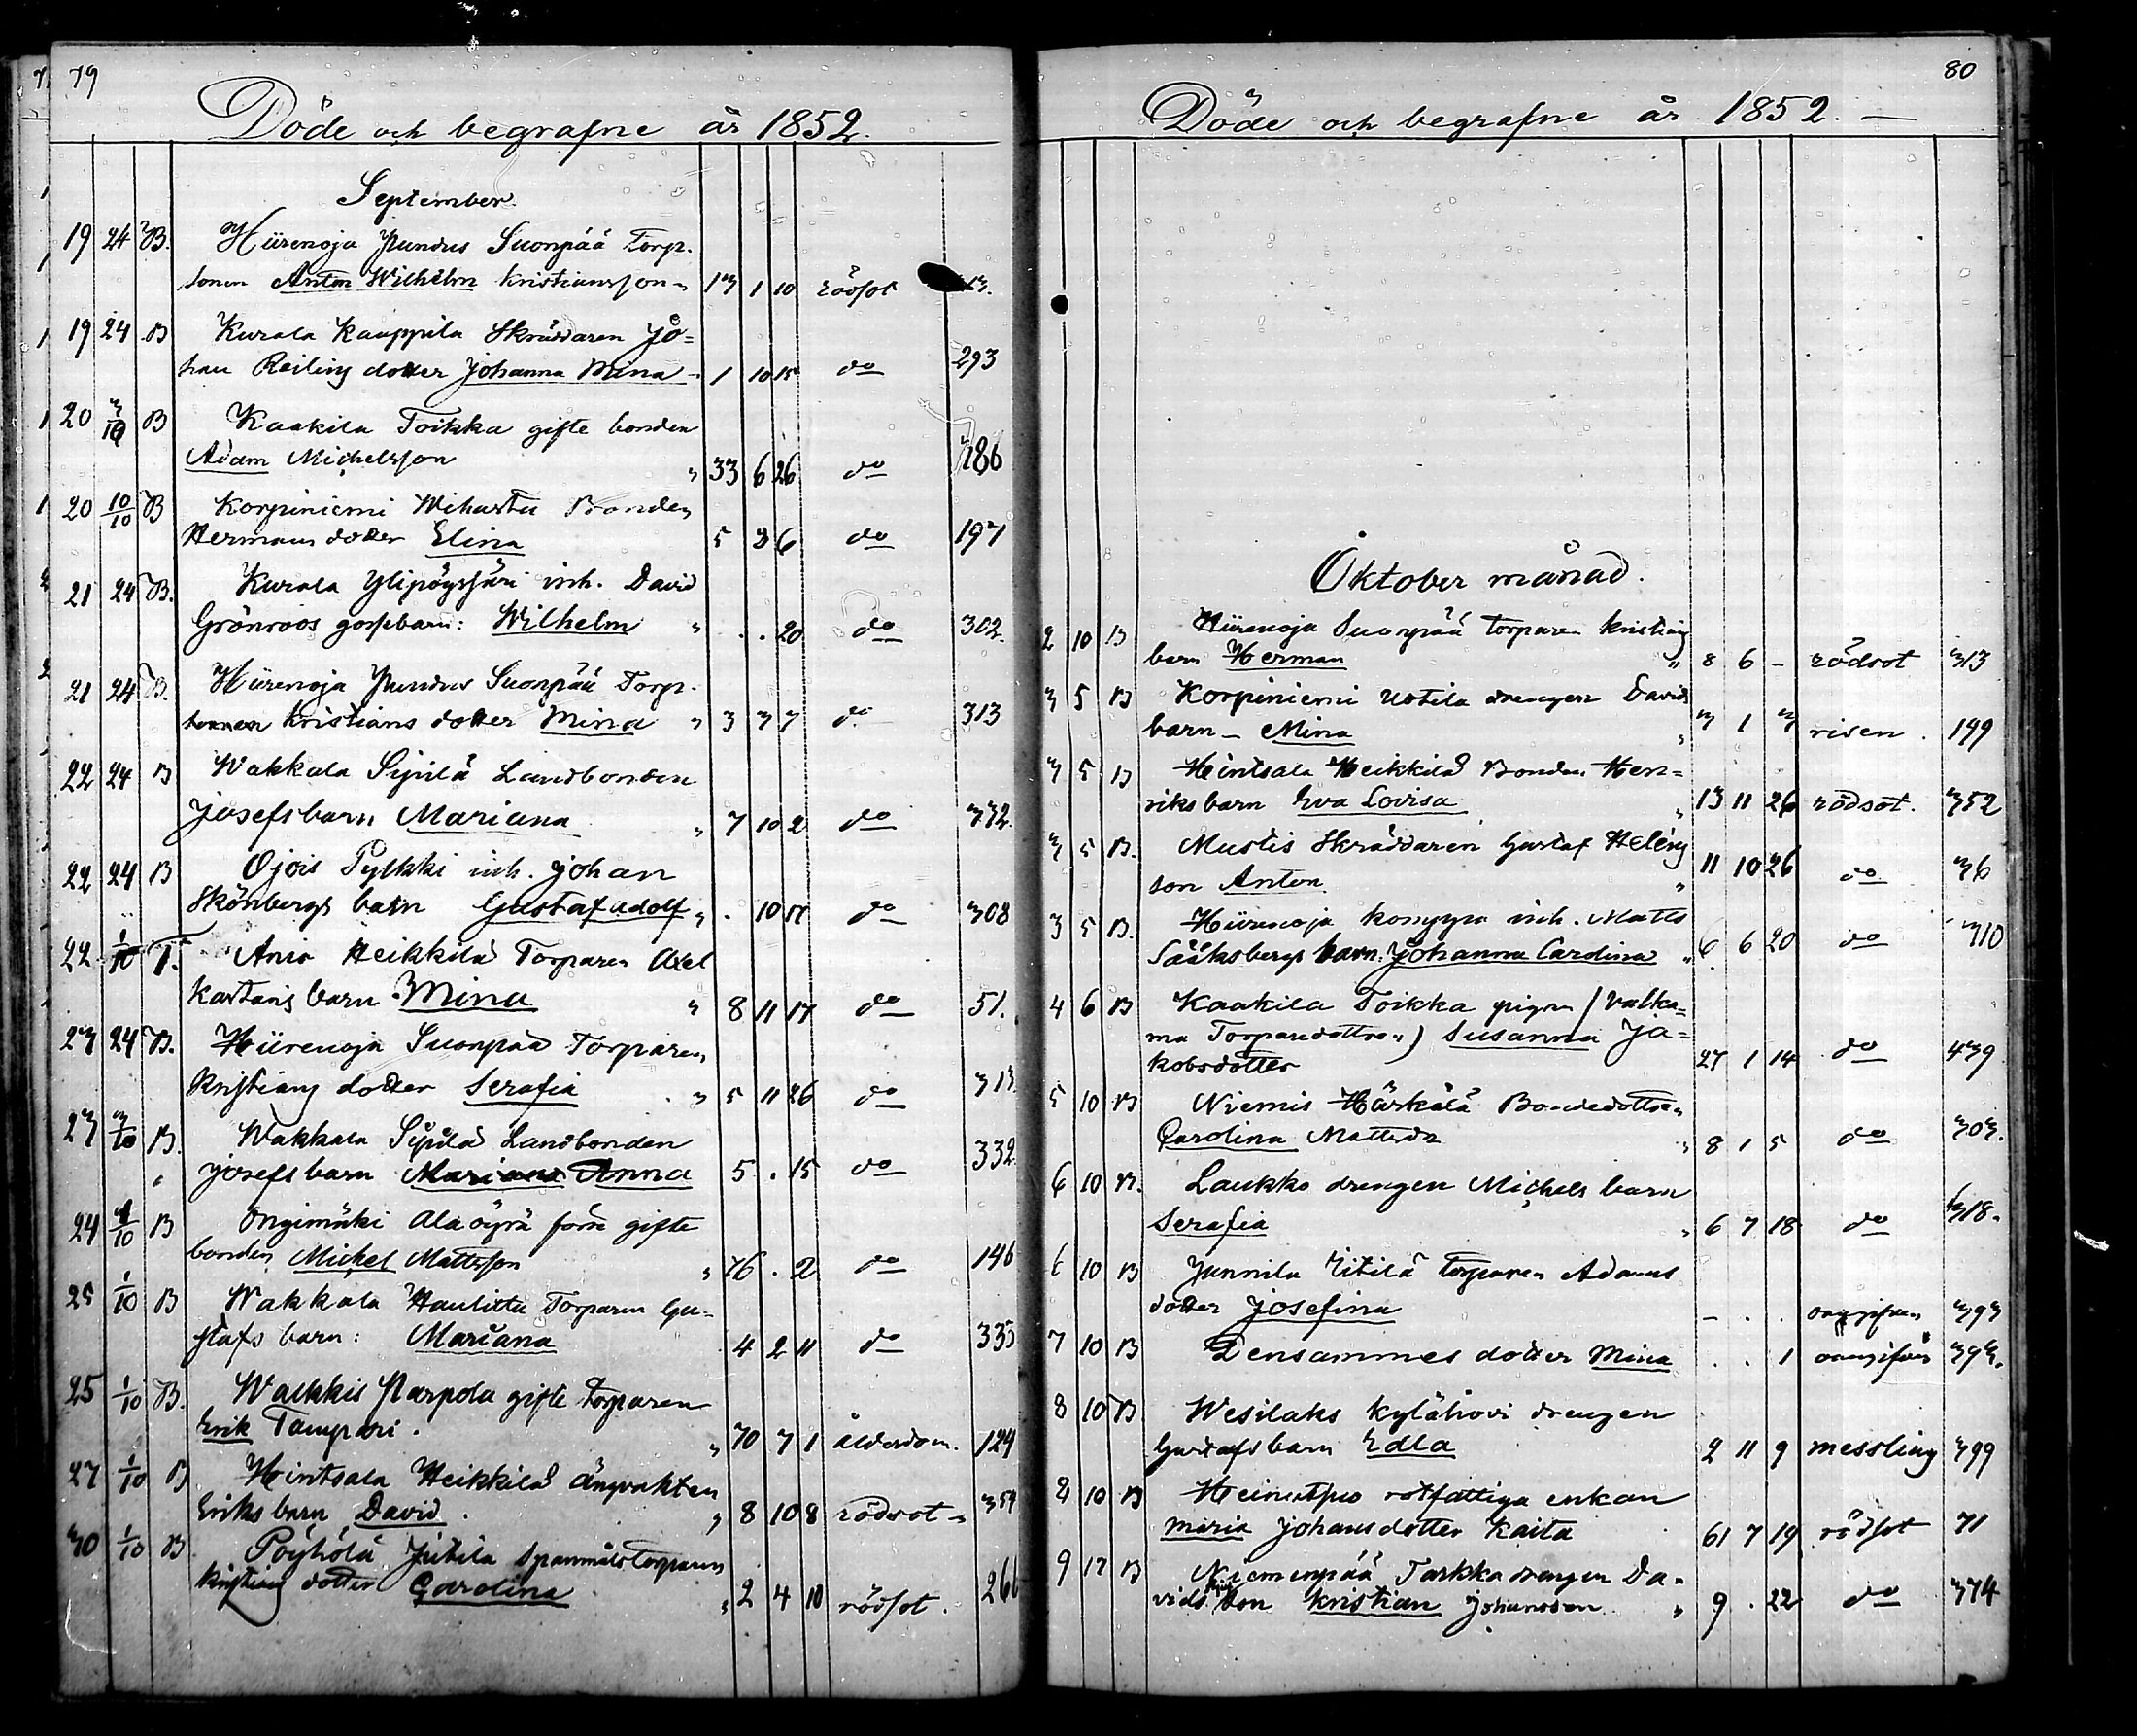 79
Döde och begrafne år 1852.
September
19 24 B. Hiirenoja Jundus Suonpää Torp.
sonen Anton Wilhelm Kristiansson " 13 1 10 rödsot
19 24 B Kurala Kauppila Skräddaren Jo=
han Reiling dotter Johanna Mina 1 10 15 do 293
20 3/10 B Kaakila Toikka gifte bonden
Adam Michelsson " 33 6 26 do 186
20 10/10 B Korpiniemi Wihastu Bonden
Hermans dotter Elina 5 3 6 do 197
21 24 B. Kurala Ylipöysjäri inh. David
Grönroos gossebarn: Wilhelm " . . 20 do 302.
21 24 B. Hiirenoja Jundus Suonpää Torp.
Kristians dotter Mina " 3 3 7 do 313
22 24 B Wakkala Sipilä Landbonden
Josefs barn Mariana " 7 10 2 do 332.
22 24 B Ojois Pylkki inh. Johan
Skönbergs barn Gustaf Adolf " . 10 17 do 308
22 1/10 T. Anio Heikkilä Torparen Axel
Kartanis barn Mina " 8 11 17 do 51.
23 24 B. Hiirenoja Suonpää Torparen
Kristians dotter Serafia " 5 11 26 do 313.
23 3/10 B. Wakkala Sipilä Landbonden
Josefs barn Mariana Anna 5 . 15 do 332
24 1/10 B Ongimäki Alaöyrä förre gifte
bonden Michel Mattsson " 76 . 2 do 146
25 1/10 B Wakkala Haulittu Torparen Gu=
stafs barn: Mariana 4 2 11 do 335
25 1/10 B. Walkkis Parpola gifte Torparen
Erik Tampari. " 70 7 1 ålderdom. 124
27 1/10 B Hintsala Heikkilä ängvakten
Eriks barn David. " 8 10 8 rödsot 354
30 1/10 B Pöyhölä Jutila Spannmålstorparen
Kristians dotter Carolina " 2 4 10 rödsot. 266
80
Döde och begrafne år 1852. —
Oktober månad.
2 10 B Hiirenoja Suonpää torparen Kristians
barn Herman " 8 6 - rödsot 313
3 5 B Korpiniemi Uotila drengen Davids
barn - Mina " 3 1 3 risen. 199
3 5 B Hintsala Heikkilä Bonden Hen=
riks barn Eva Lovisa " 13 11 26 rödsot. 352
3 5 B. Mustis Skräddaren Gustaf Heléns
son Anton " 11 10 26 do 36
3 5 B. Hiirenoja Konyyra inh. Matts
Sääksbergs barn. Johanna Carolina " 6 6 20 do 310
4 6 B Kaakila Toikka pigan (Valka=
ma Torparedottren) Susanna Ja=
kobsdotter 27 1 14 do 439
5 10 B Niemis Härkälä Bondedottren
Carolina Mattsdr " 8 1 5 do 303.
6 10 B. Laukko drengen Michels barn
Serafia " 6 7 18 do 318.
6 10 B Junnila Eitilä torparen Adams
dotter Josefina - . . oangifven 393
7 10 B Densammes dotter Mina . . 1 oangifven 393.
8 10 B Wesilaks Kylähovi drengen
Gustafs barn Edla 2 11 9 messling 399
8 10 B rotfattiga enkan
Maria Johansdotter Kaita 61 7 19 rödsot 71
9 17 B Niemenpää Tarkka drengen Da=
vids son Kristian Johansson " 9 . 22 do 374